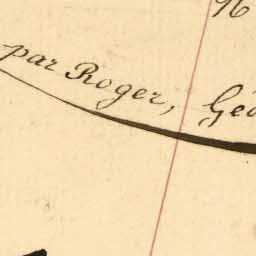 par Roger, Géo